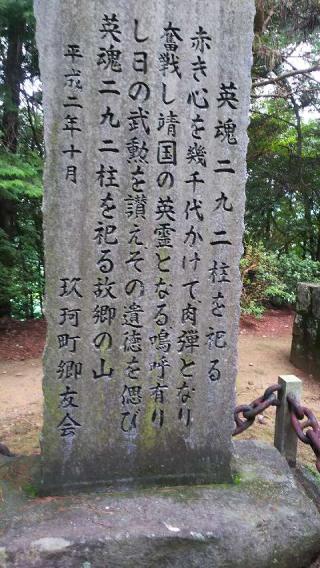 英魂二九二柱を祀る
赤き心を幾千代かけて肉弾となり
奮戦し靖国の英霊となる嗚呼有り
し日の武勲を讃えその遺徳を偲び
英魂二九二柱を祀る故郷の山
平成二年十月
玖珂町郷友会